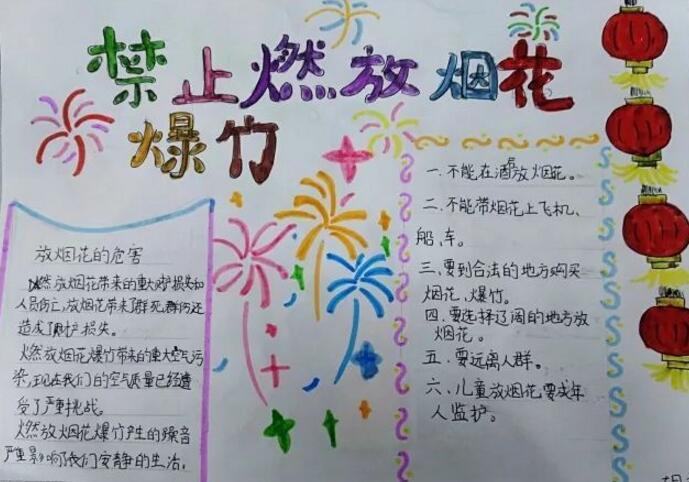 禁止燃放烟花
爆竹
放烟花的危害
燃放烟花带来的重大财产损失和
人员伤亡,放烟花带来了
造成了财产损失。
燃放烟花爆竹带来的重大空气污
染,现在我们的空气质量已经遭
受了严重挑战。
燃放烟花爆竹产生的噪音
严重影响了我们安静的生活。
一.不能在酒店放烟花。
二.不能带烟花上飞机、
船、车。
三、要到合法的地方购买
烟花、爆竹。
四.要选择辽阔的地方放
烟花。
五.要远离人群。
六、儿童放烟花要成年
人监护。